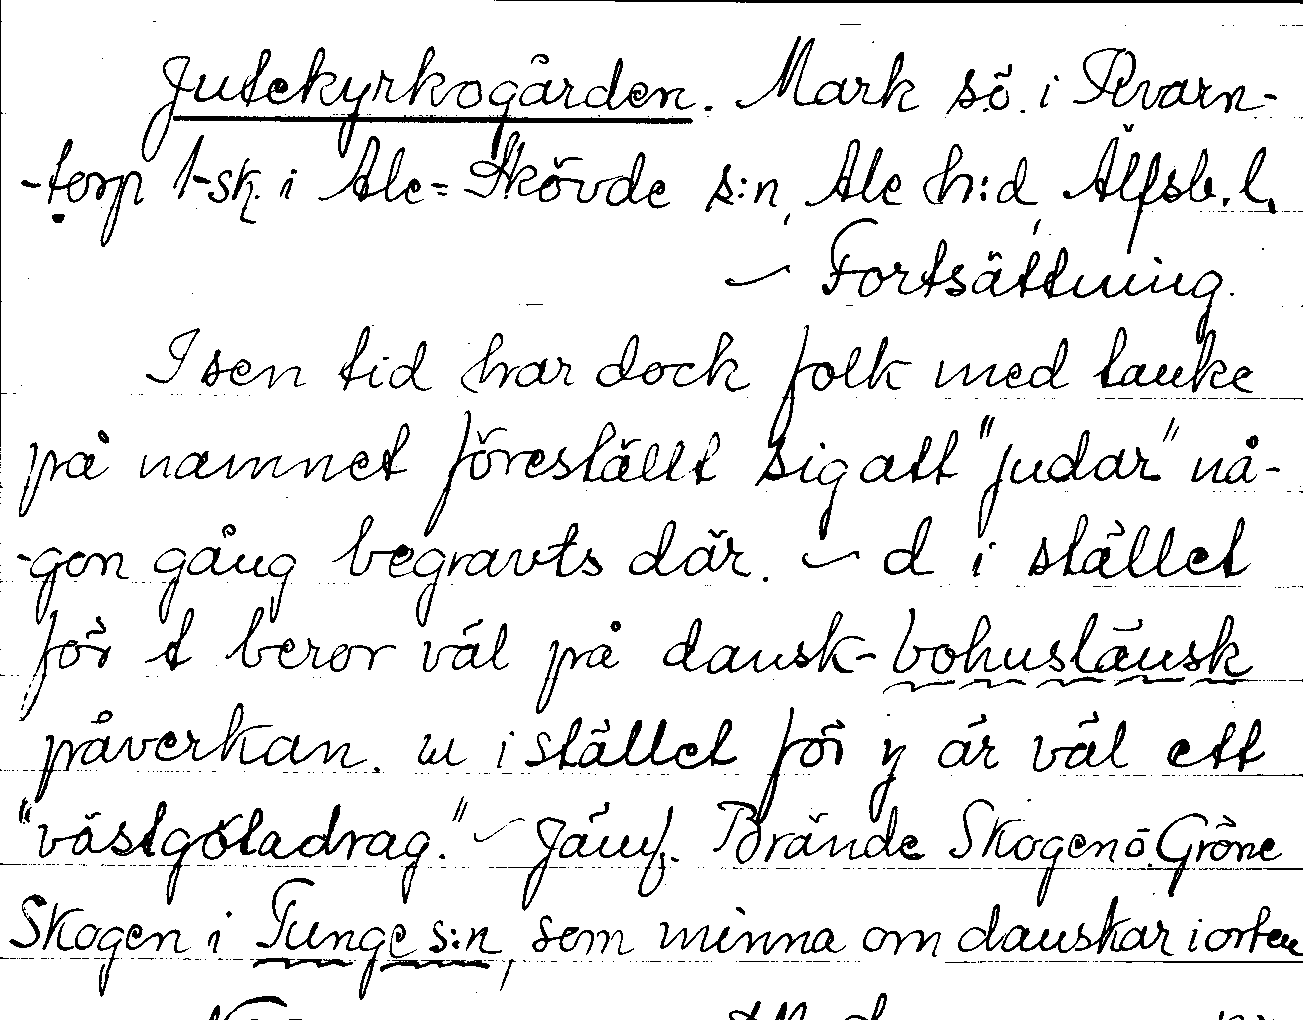 Jutekyrkogården. Mark sö. i Kvarn-
-torp 1-sk. i Ale=Skövde s:n, Ale h:d, Älfsb. l.
— Fortsättning.
I sen tid har dock folk med tanke
på namnet föreställt sig att "judar" nå-
-gon gång begravts där. — d i stället
för t beror väl på dansk-bohuslänsk
påverkan. u i stället för y är väl ett
"västgötadrag." — Jämf. Brände Skogen o. Gröne
Skogen i Tunge s:n, som minna om danskar i orten